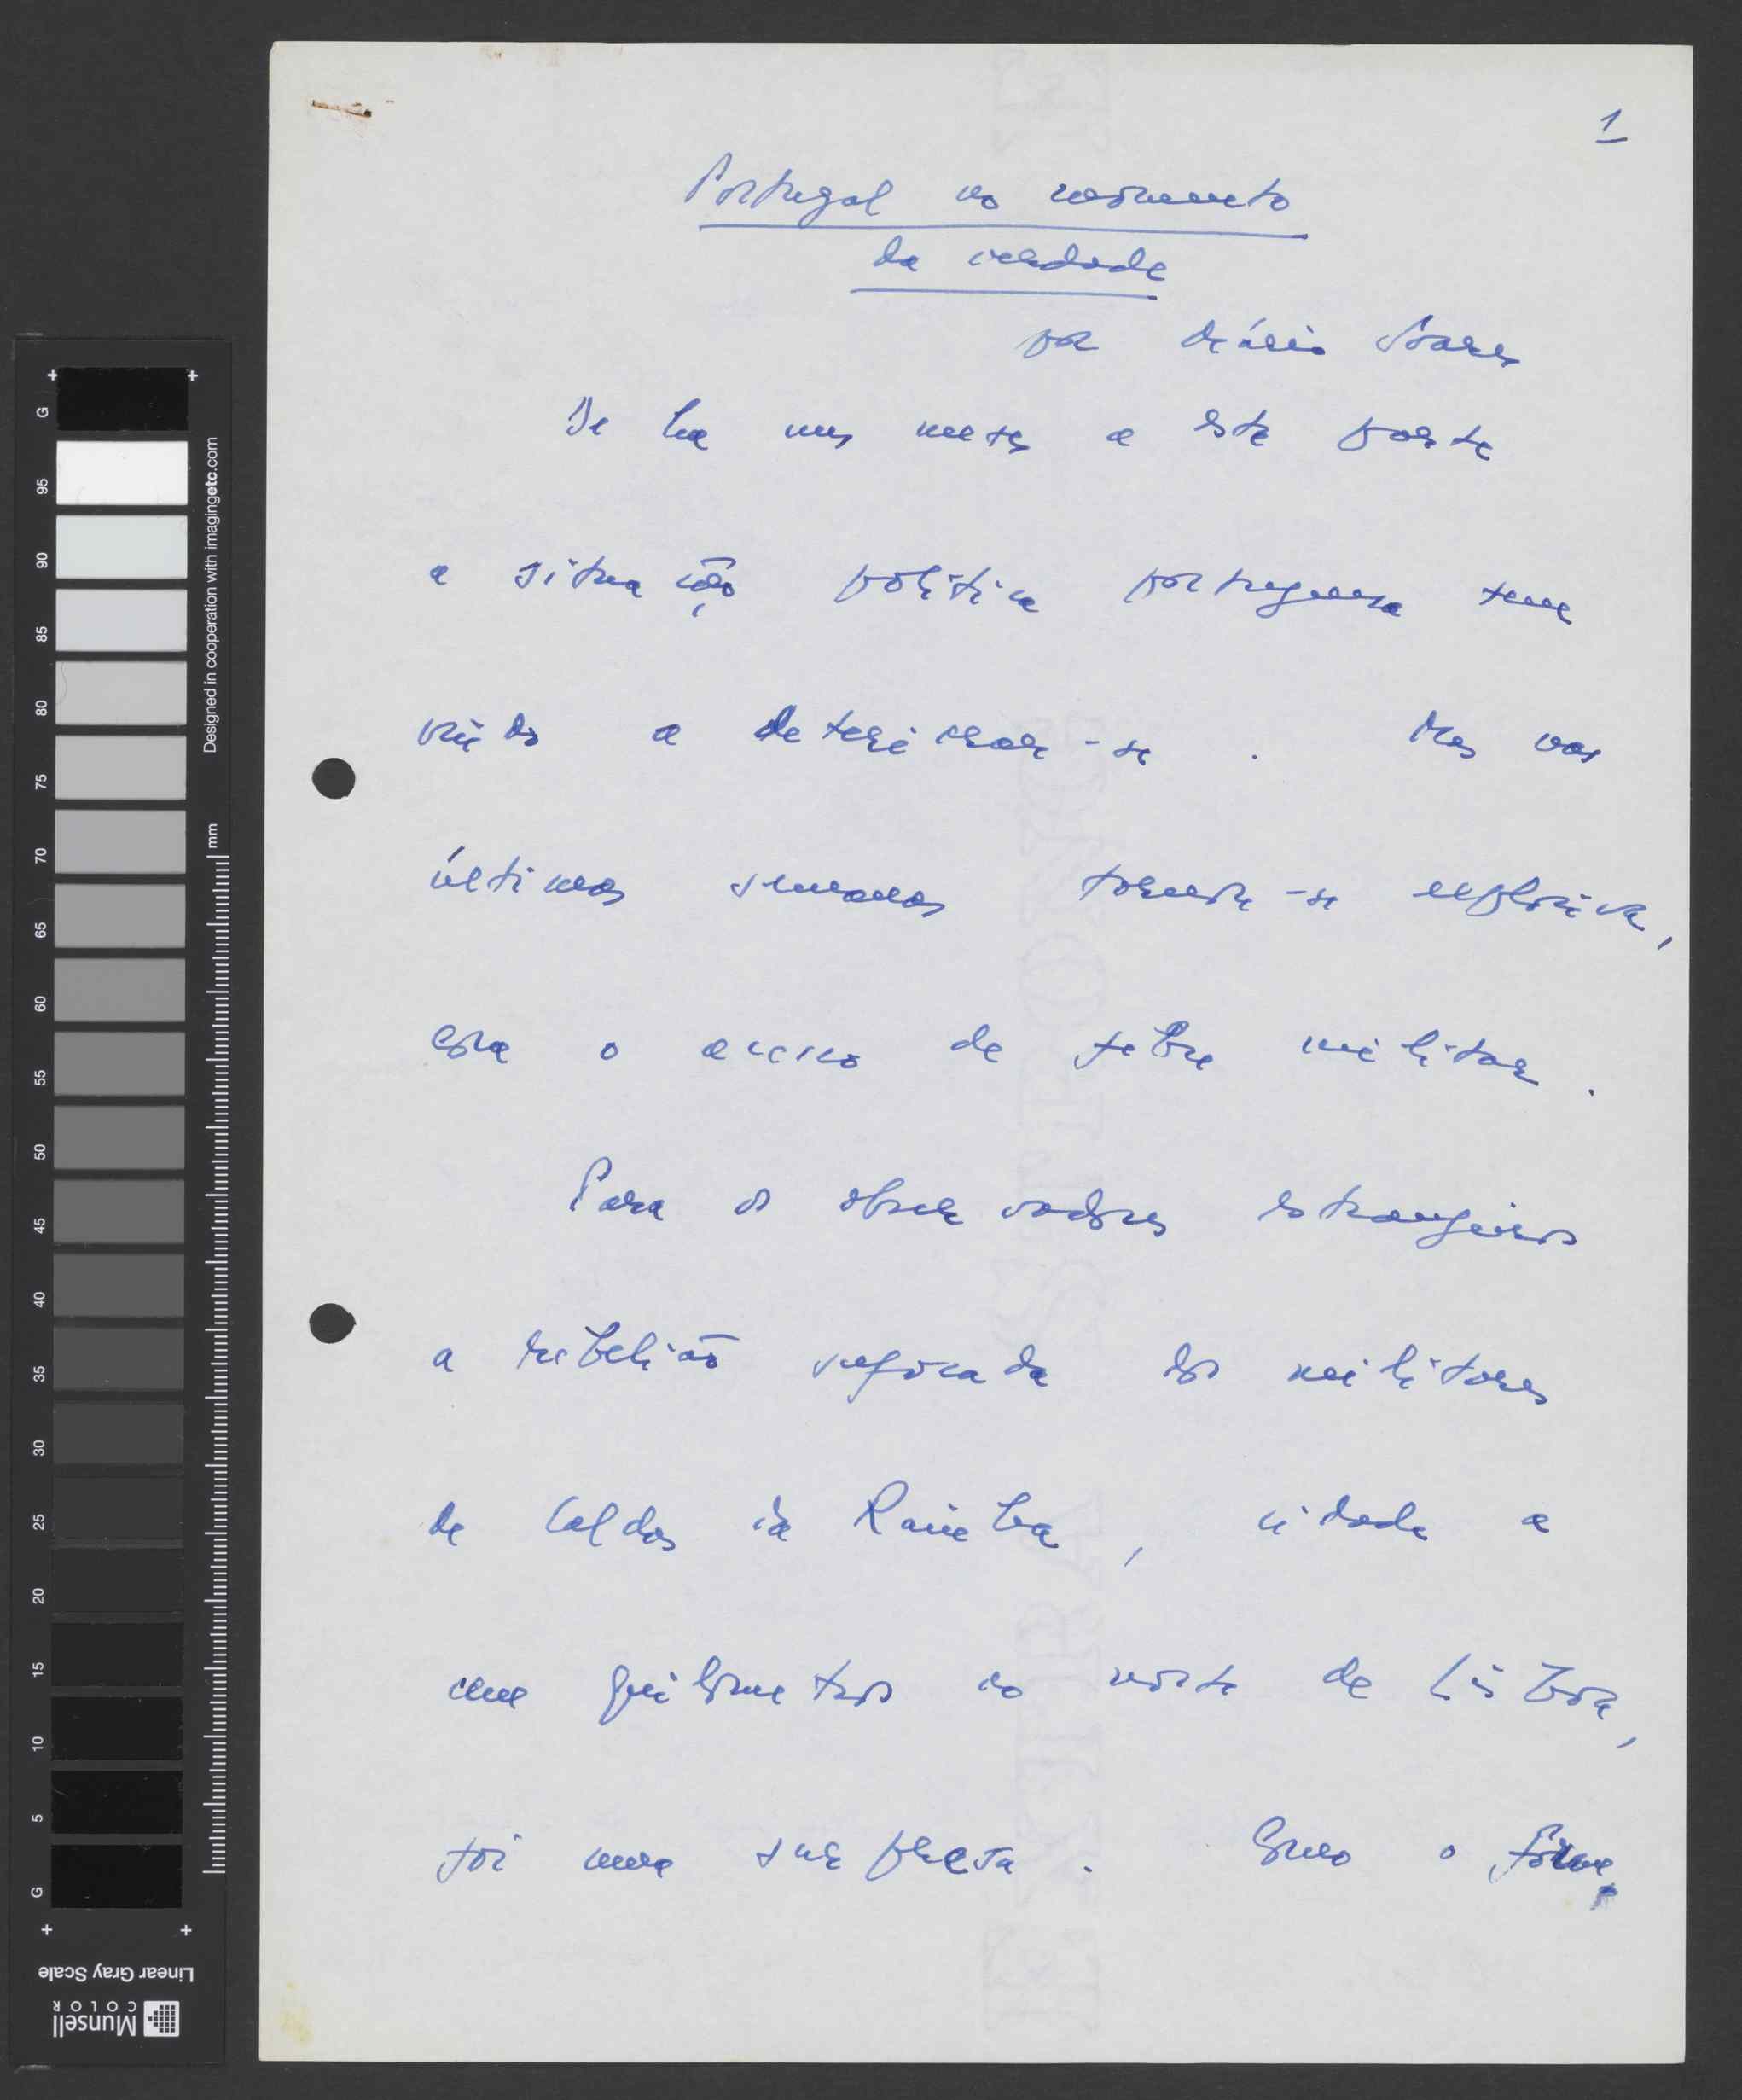 1
Portugal no momento
da verdade
por Mário Soares
De há uns meses a esta parte
a situação política portuguesa tem
vindo a deteriorar-se. Mas nas
últimas semanas tornou-se explosiva,
com o acesso de febre militar.
Para os observadores estrangeiros
a rebelião sufocada dos militares
de Caldas da Rainha, cidade a
cem quilómetros ao norte de Lisboa,
foi uma surpresa. Como o fôra,
G
95
90
85
80
75
70
65
60
55
50
45
40
35
30
25
20
15
10
5
G
Designed in cooperation with imagingetc.com
mm
Linear Gray Scale
Munsell
COLOR